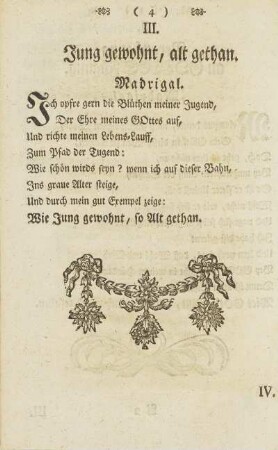 ( 4 )
III.
Jung gewohnt, alt gethan.
Madrigal.
Ich opfre gern die Blüthen meiner Jugend,
Der Ehre meines GOttes auf,
Und richte meinen Lebens-Lauff,
Zum Pfad der Tugend:
Wie schön wirds seyn? wenn ich auf dieser Bahn,
Ins graue Alter steige,
Und durch mein gut Exempel zeige:
Wie Jung gewohnt, so Alt gethan.
IV.